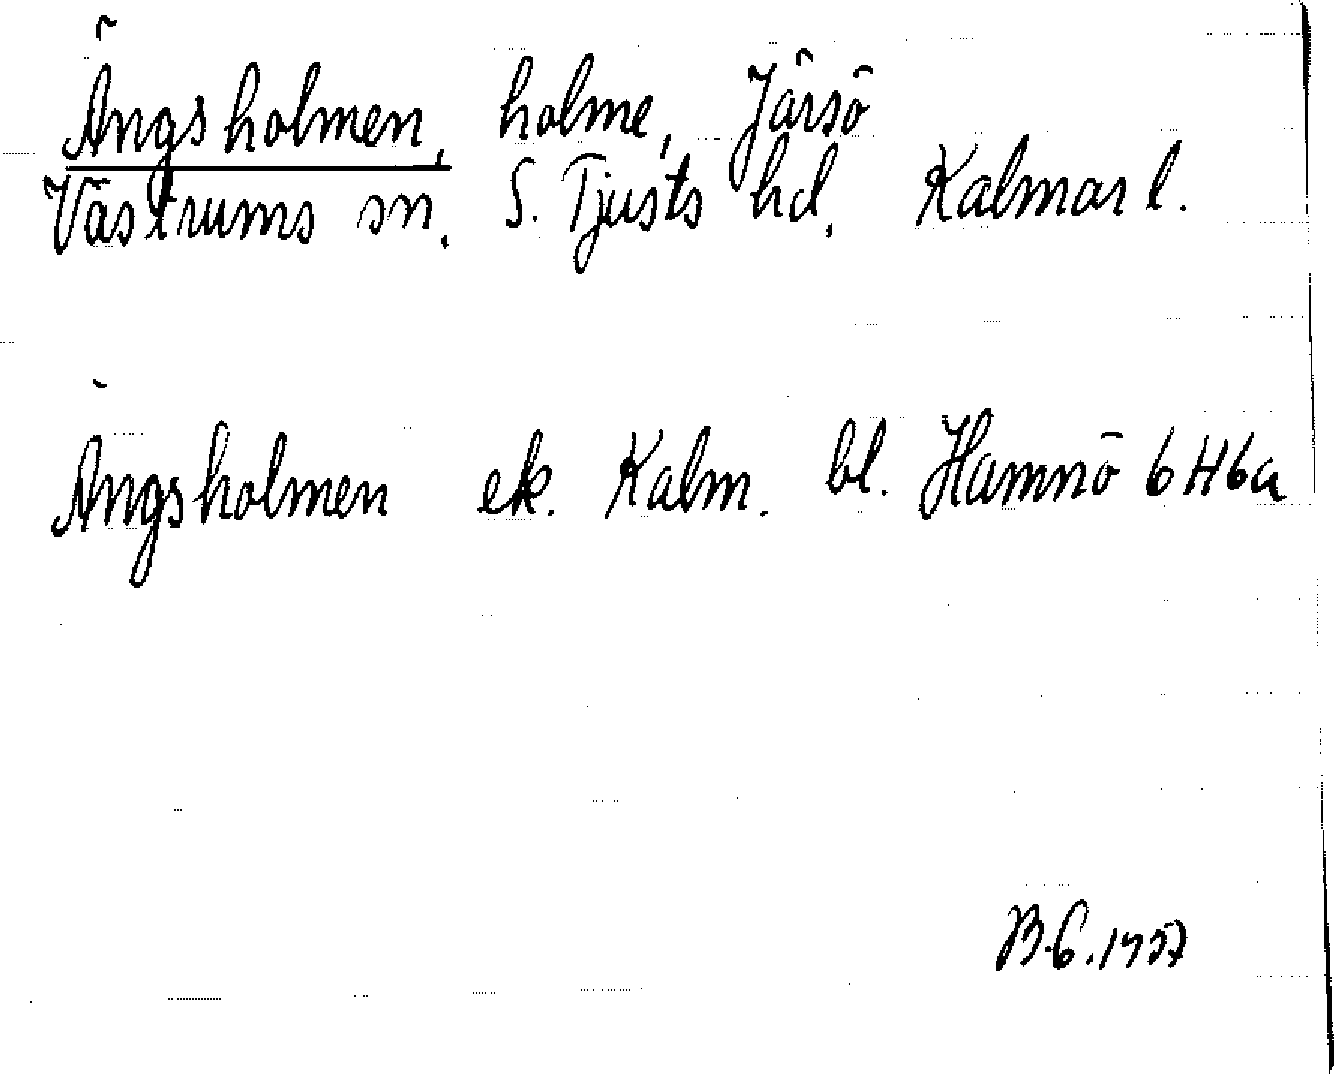 Ängsholmen, holme, Järsö
Västrums sn. S. Tjusts hd. Kalmar l.
Ängsholmen ek. Kalm. bl. Hamnö 6H6a